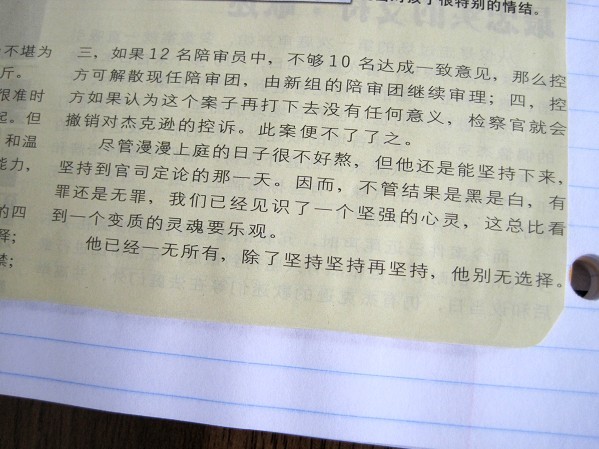 很特别的情结。
不堪为
斤。
很准时
起。但
和温
能力，
的四
择；
禁；
三，如果12名陪审员中，不够10名达成一致意见，那么控
方可解散现任陪审团，由新组的陪审团继续审理；四，控
方如果认为这个案子再打下去没有任何意义，检察官就会
撤销对杰克逊的控诉。此案便不了了之。
尽管漫漫上庭的日子很不好熬，但他还是能坚持下来，
坚持到官司定论的那一天。因而，不管结果是黑是白，有
罪还是无罪，我们已经见识了一个坚强的心灵，这总比看
到一个变质的灵魂要乐观。
他已经一无所有，除了坚持坚持再坚持，他别无选择。